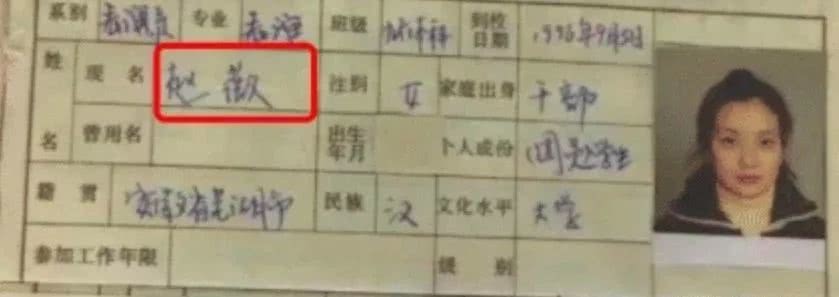 系别 表演系 专业 表演 班级 本科 到校日期 1996年9月
姓名 现名 赵薇 性别 女 家庭出身 干部
曾用名 出生年月 个人成份 学生
籍贯 安徽省芜湖市 民族 汉 文化水平 大学
参加工作年限 级别